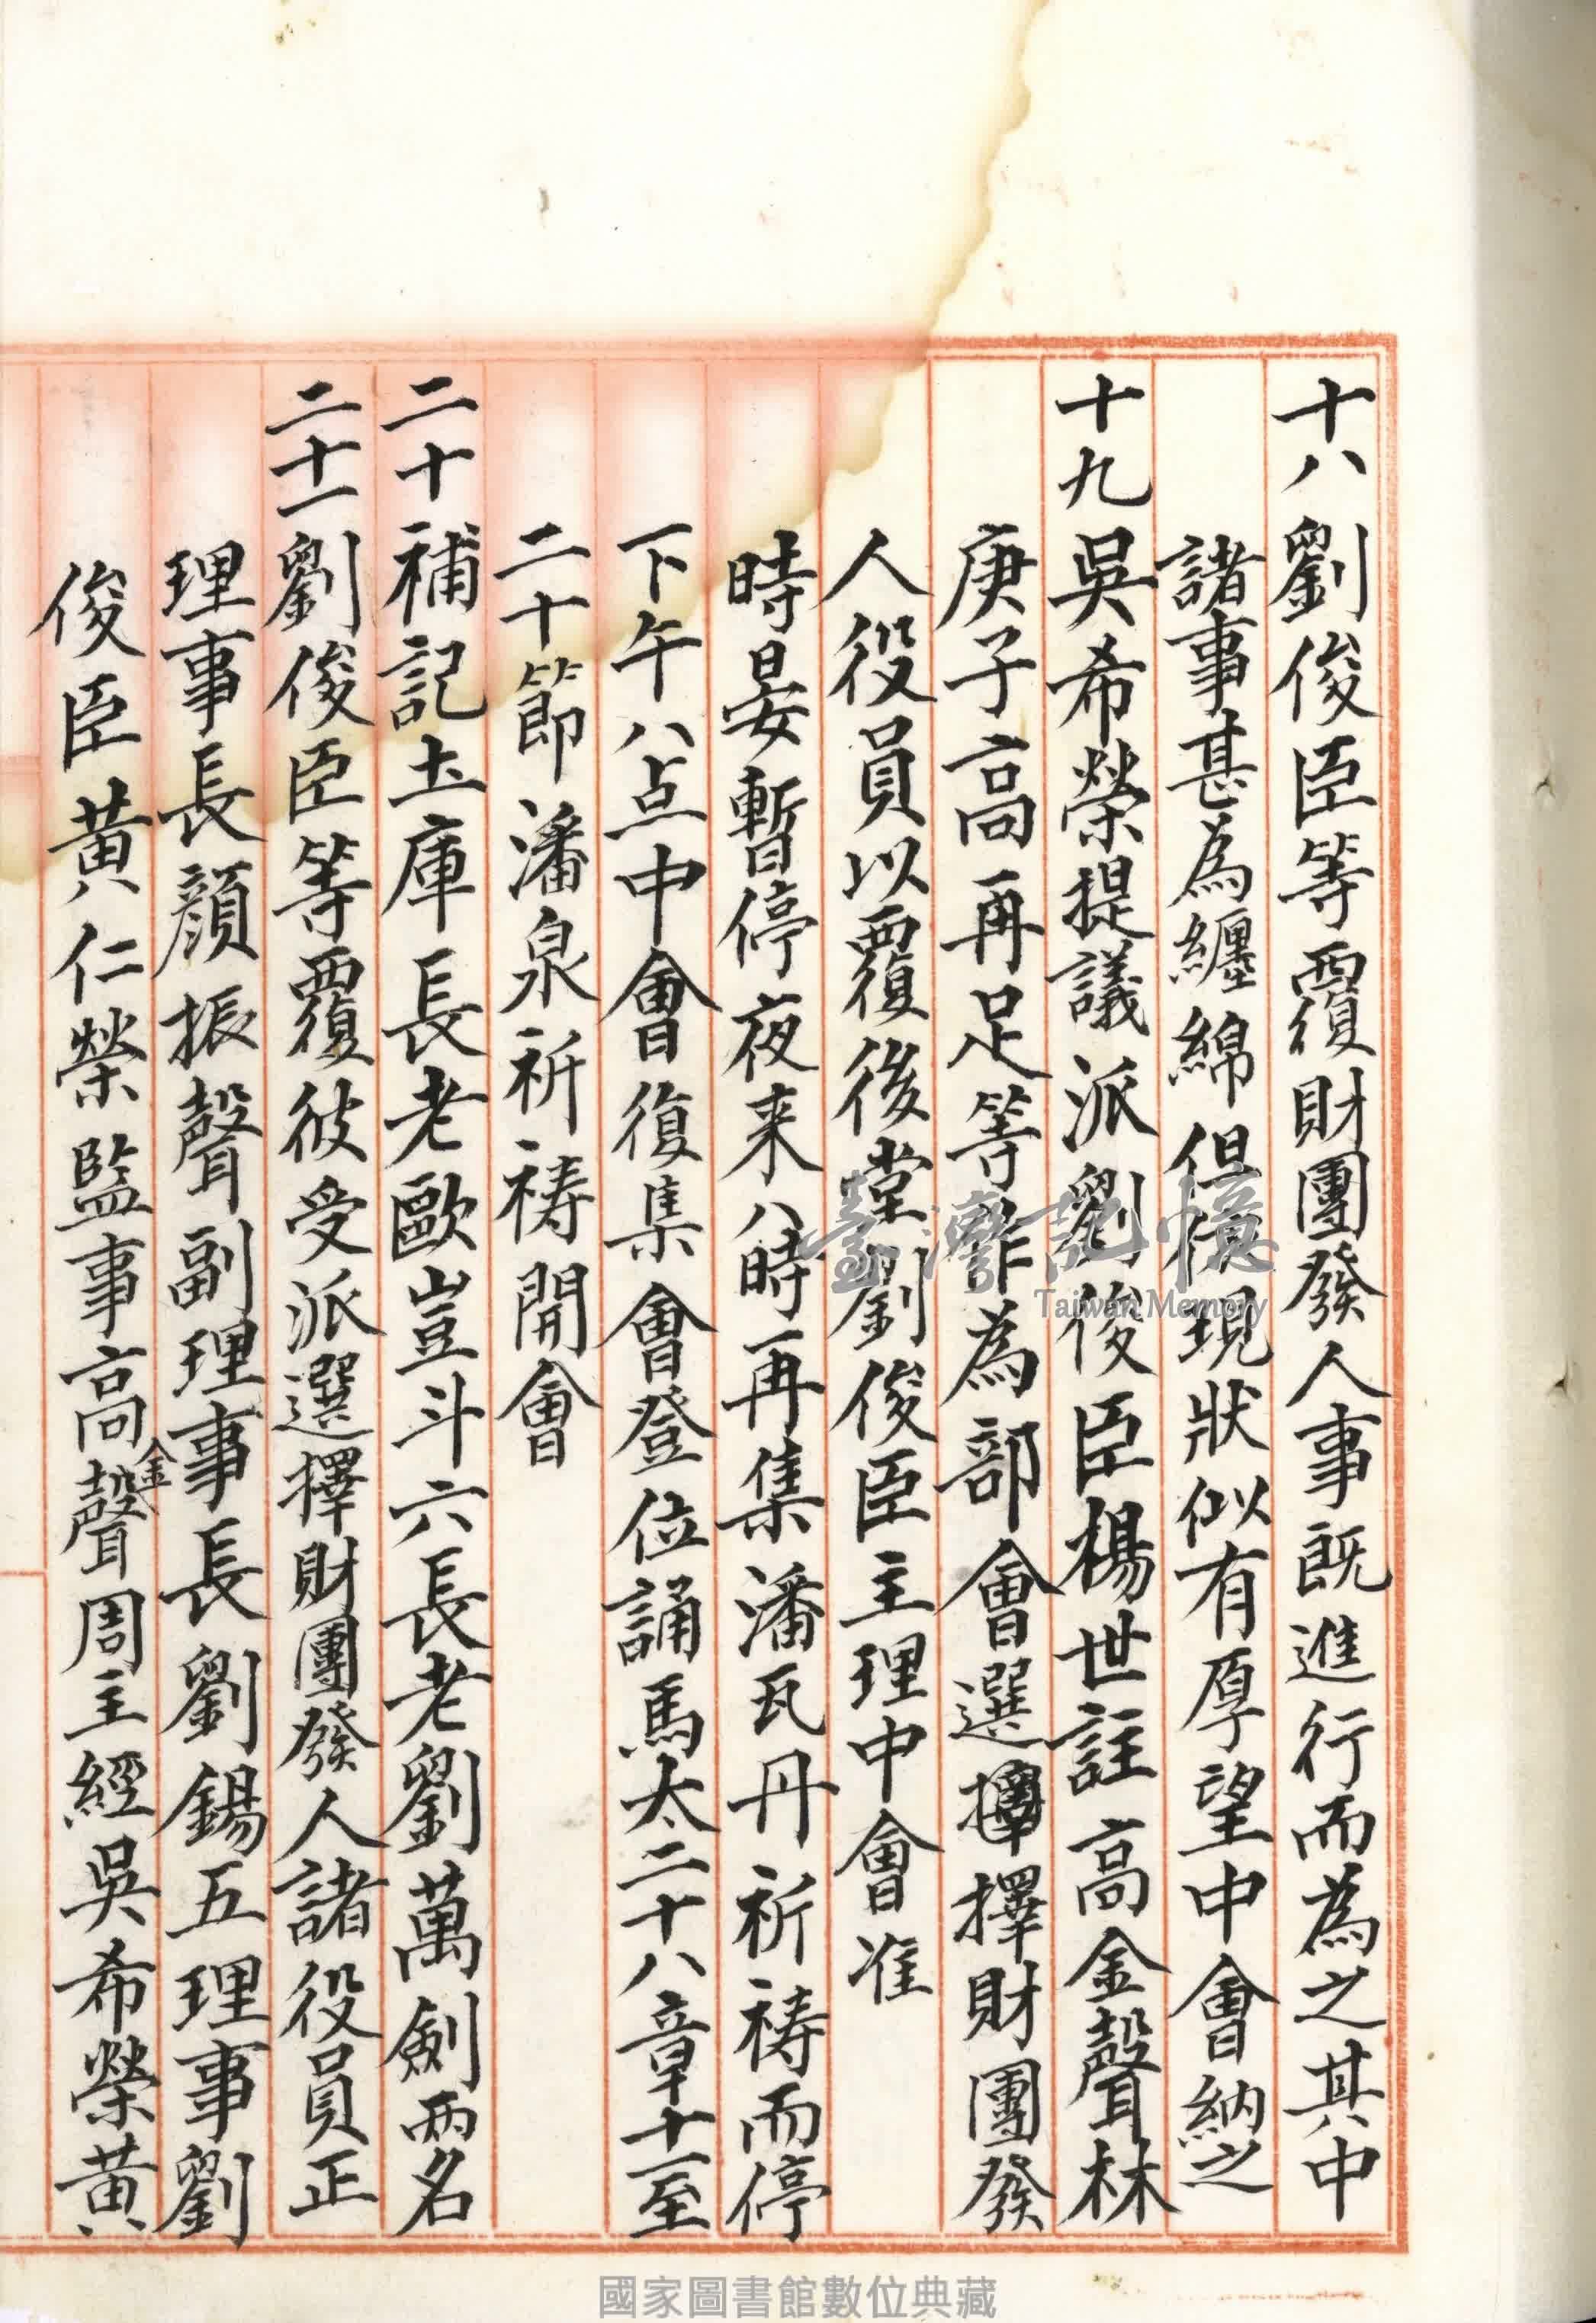 十八劉俊臣等覆財團發人事既進行而為之其中
諸事甚為纏綿但依現狀似有厚望中會納之
十九吳希榮提議派劉俊臣楊世註高金聲林
庚子高再足等作為部會選擇擇財團發
人役員以覆後堂劉俊臣主理中會准
時晏暫停夜来八時再集潘瓦丹祈禱而停
下午八点中會復集會登位誦馬太二十八章十一至
二十節潘泉祈禱開會
二十補記土庫長老歐豈斗六長老劉萬劍兩名
二十一劉俊臣等覆彼受派選擇財團發人諸役員正
理事長顏振聲副理事長劉錫五理事劉
俊臣黃仁榮監事高金聲周主經吳希榮黃
臺灣記憶
Taiwan Memory
國家圖書館數位典藏